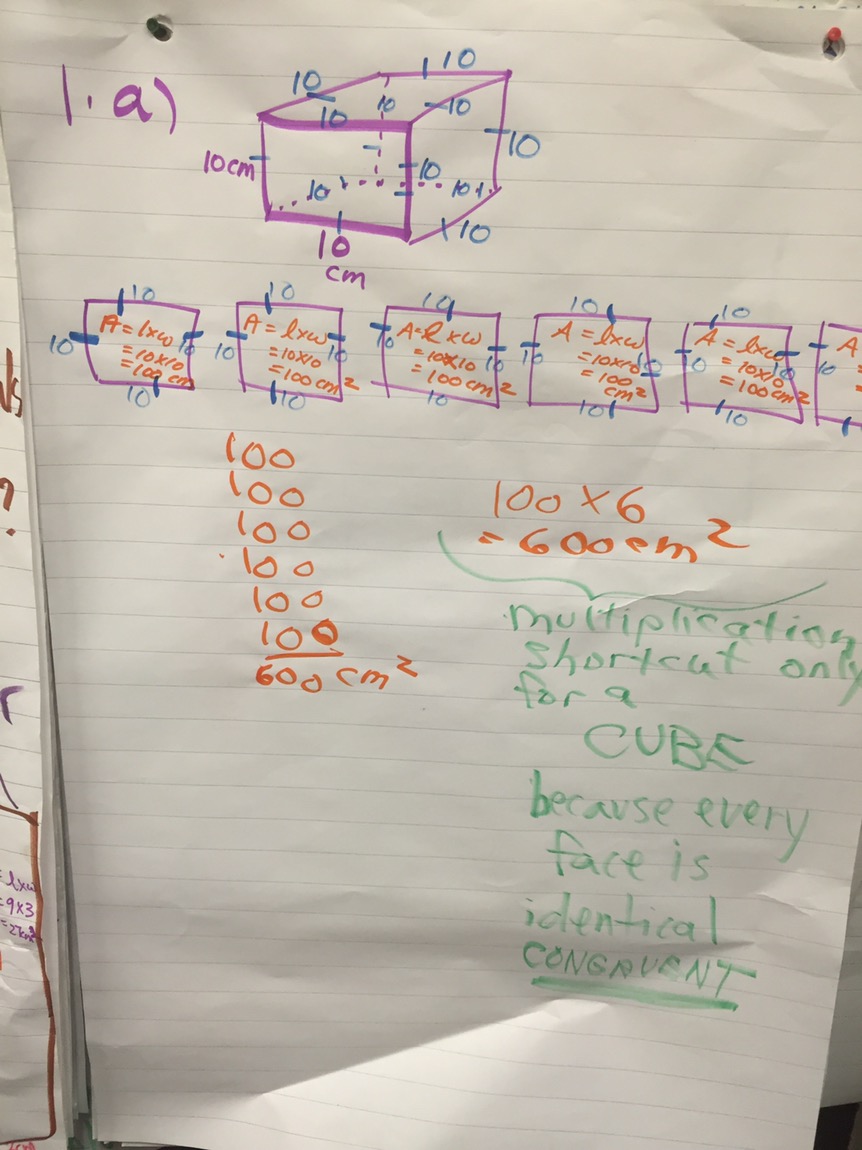 1. a)
10
10
10
10
10
10 cm
10
10
10
10
10
10
10
cm
10
10
10
10
10
10 A = lxw 10
= 10x10
= 100 cm
10
10 A = lxw 10
= 10x10
= 100 cm²
10
10 A = l xw 10
= 10x10
= 100 cm²
10
10 A = lxw 10
= 10x10
= 100
cm²
10
10 A = lxw 10
= 10x10
= 100 cm²
10
10 A
=
=
100
100
100
100
100
100
600 cm²
100 x 6
= 600 cm²
multiplication
shortcut only
for a
CUBE
because every
face is
identical
CONGRUENT
= lxw
= 9x3